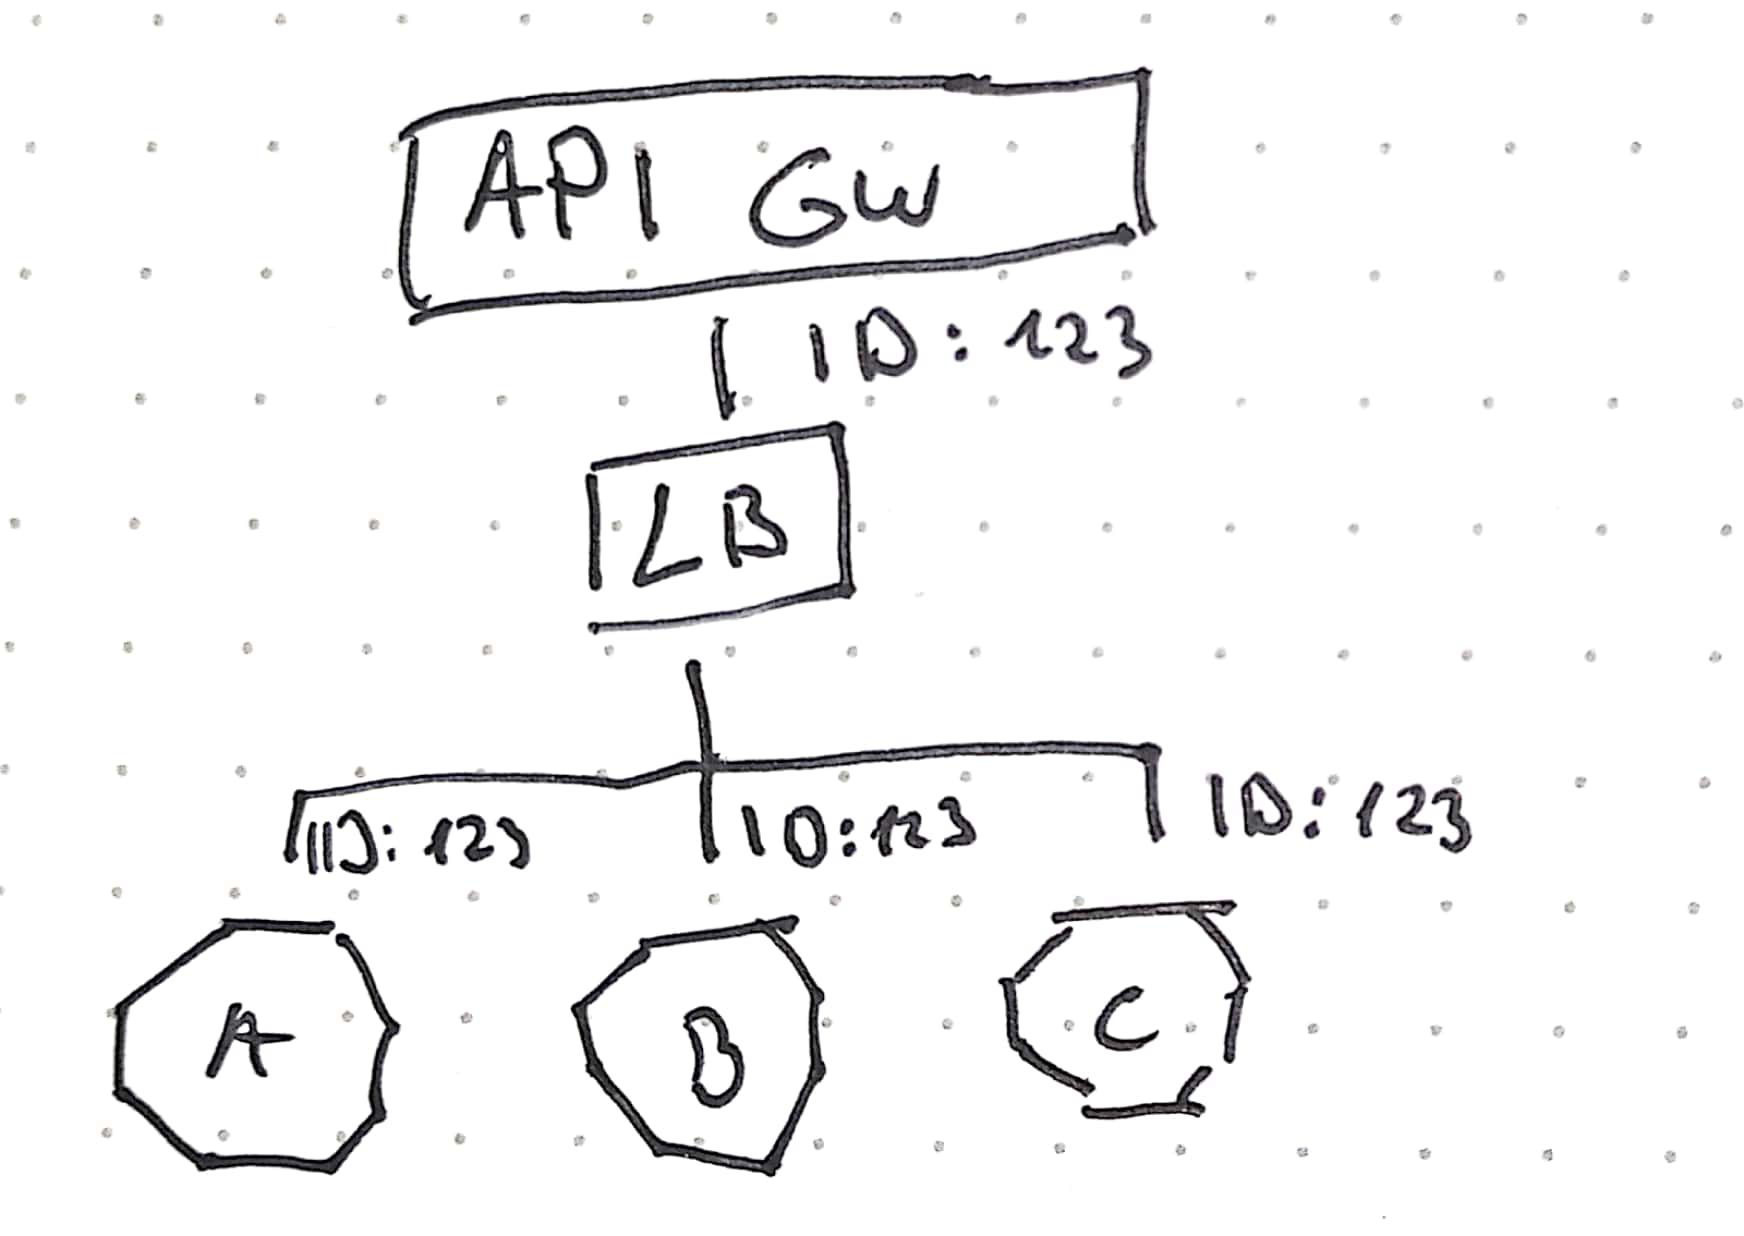 API GW
ID: 123
LB
ID: 123
ID: 123
ID: 123
A
B
C